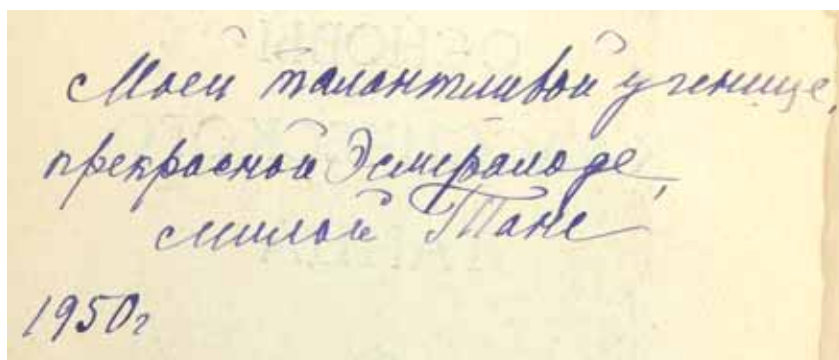 Моей талантливой ученице,
прекрасной Эсмеральде,
милой Тане
1950г